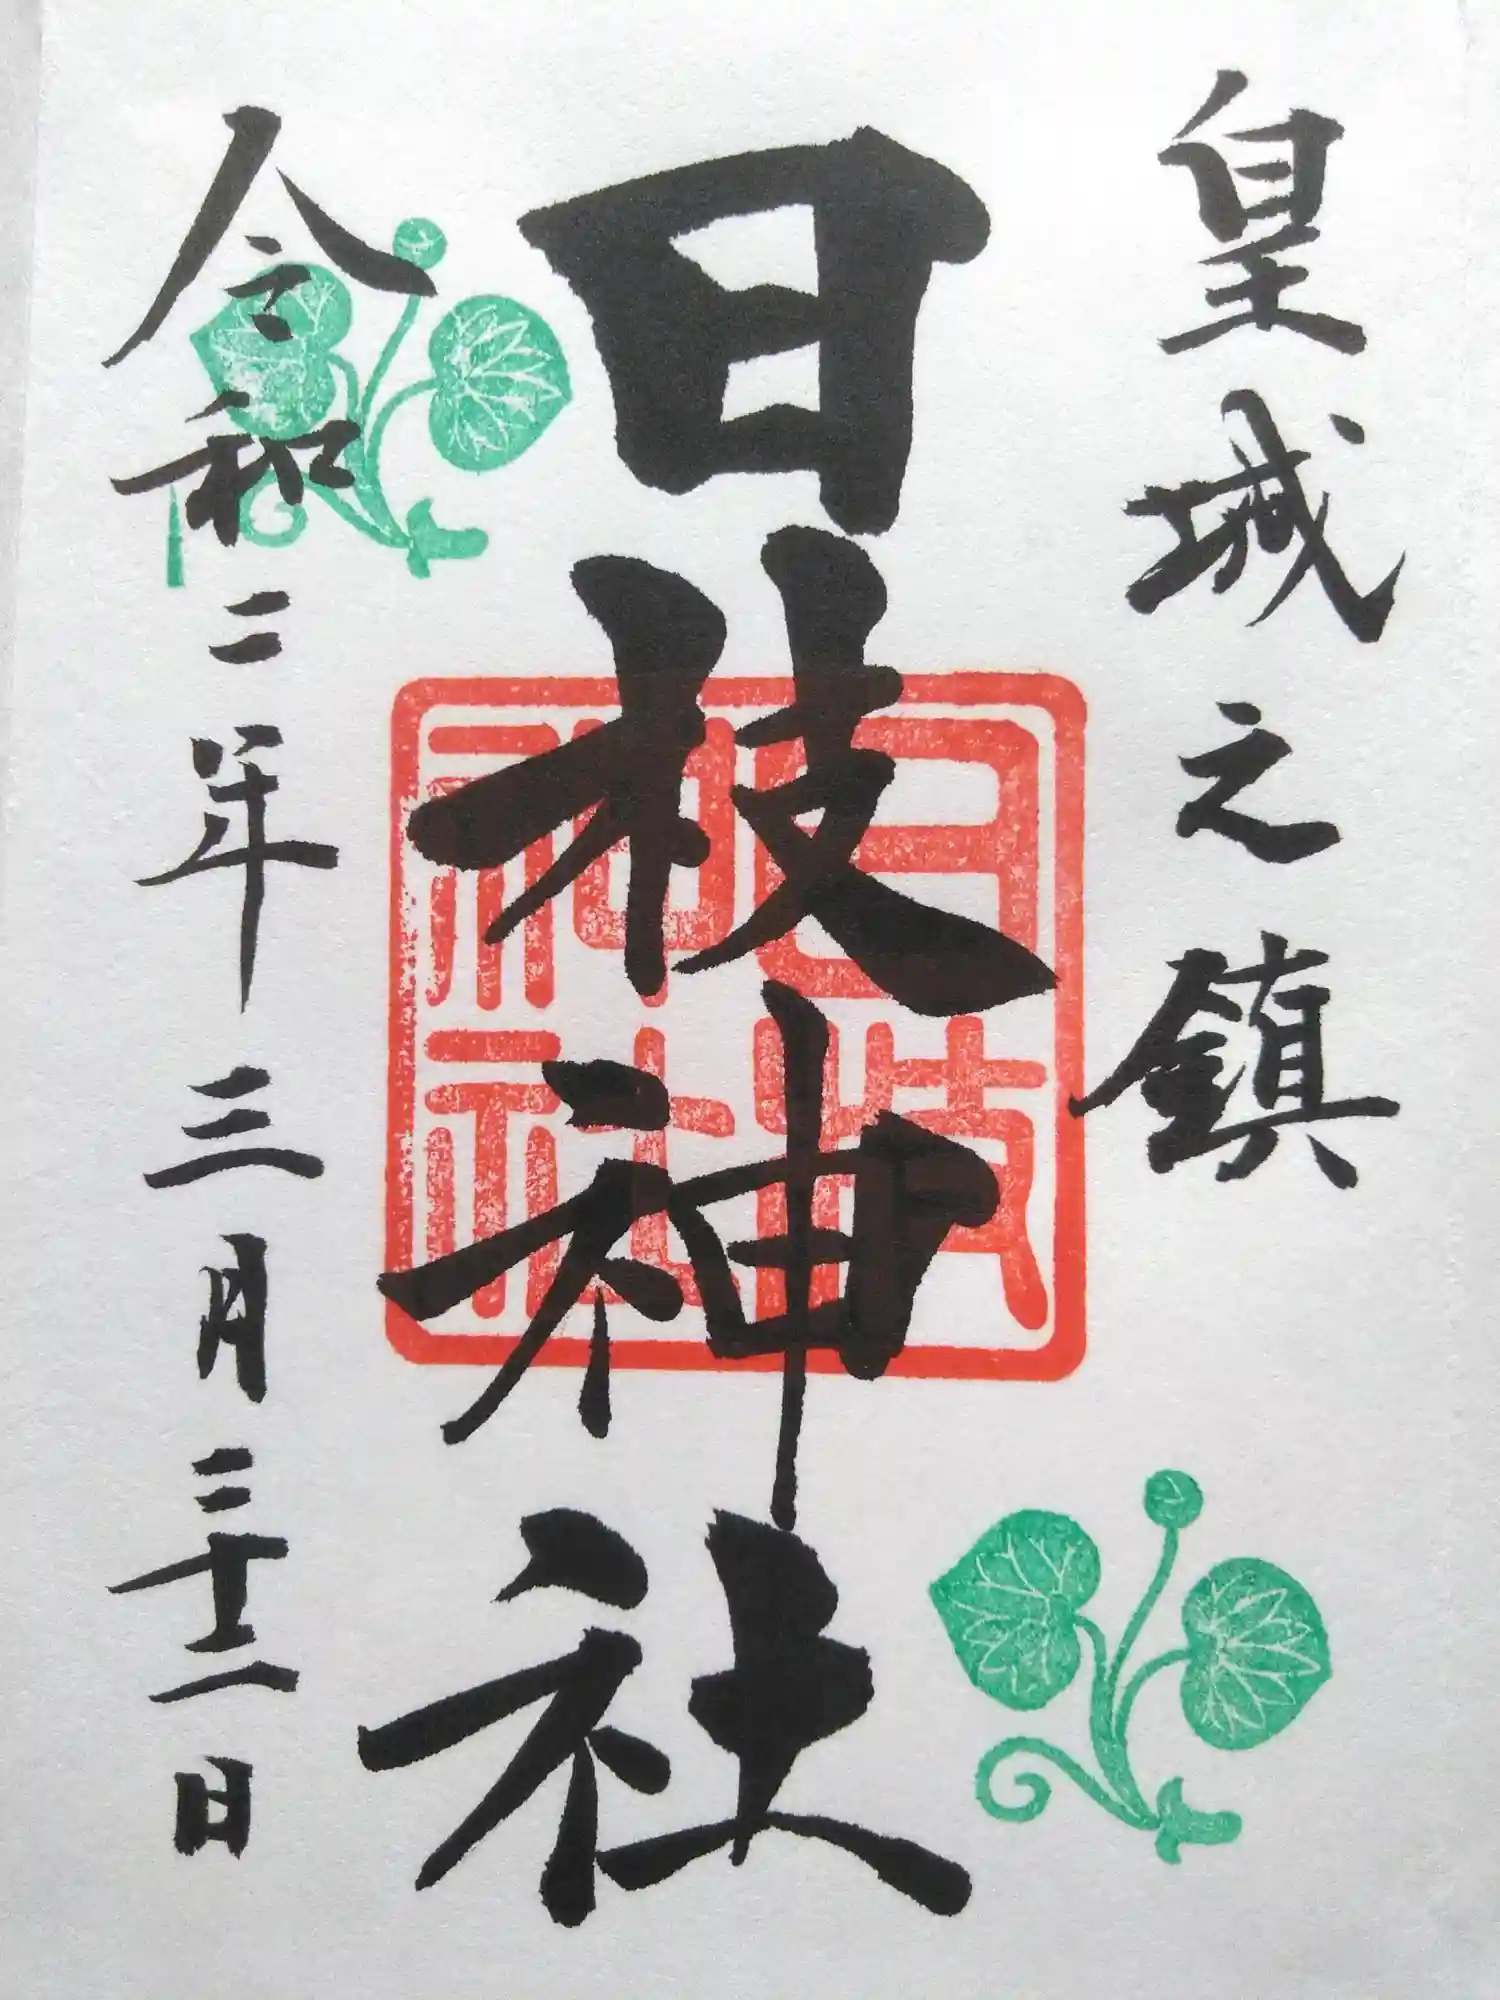 皇城之鎮
日枝神社
令和二年三月二十二日
日枝
神社